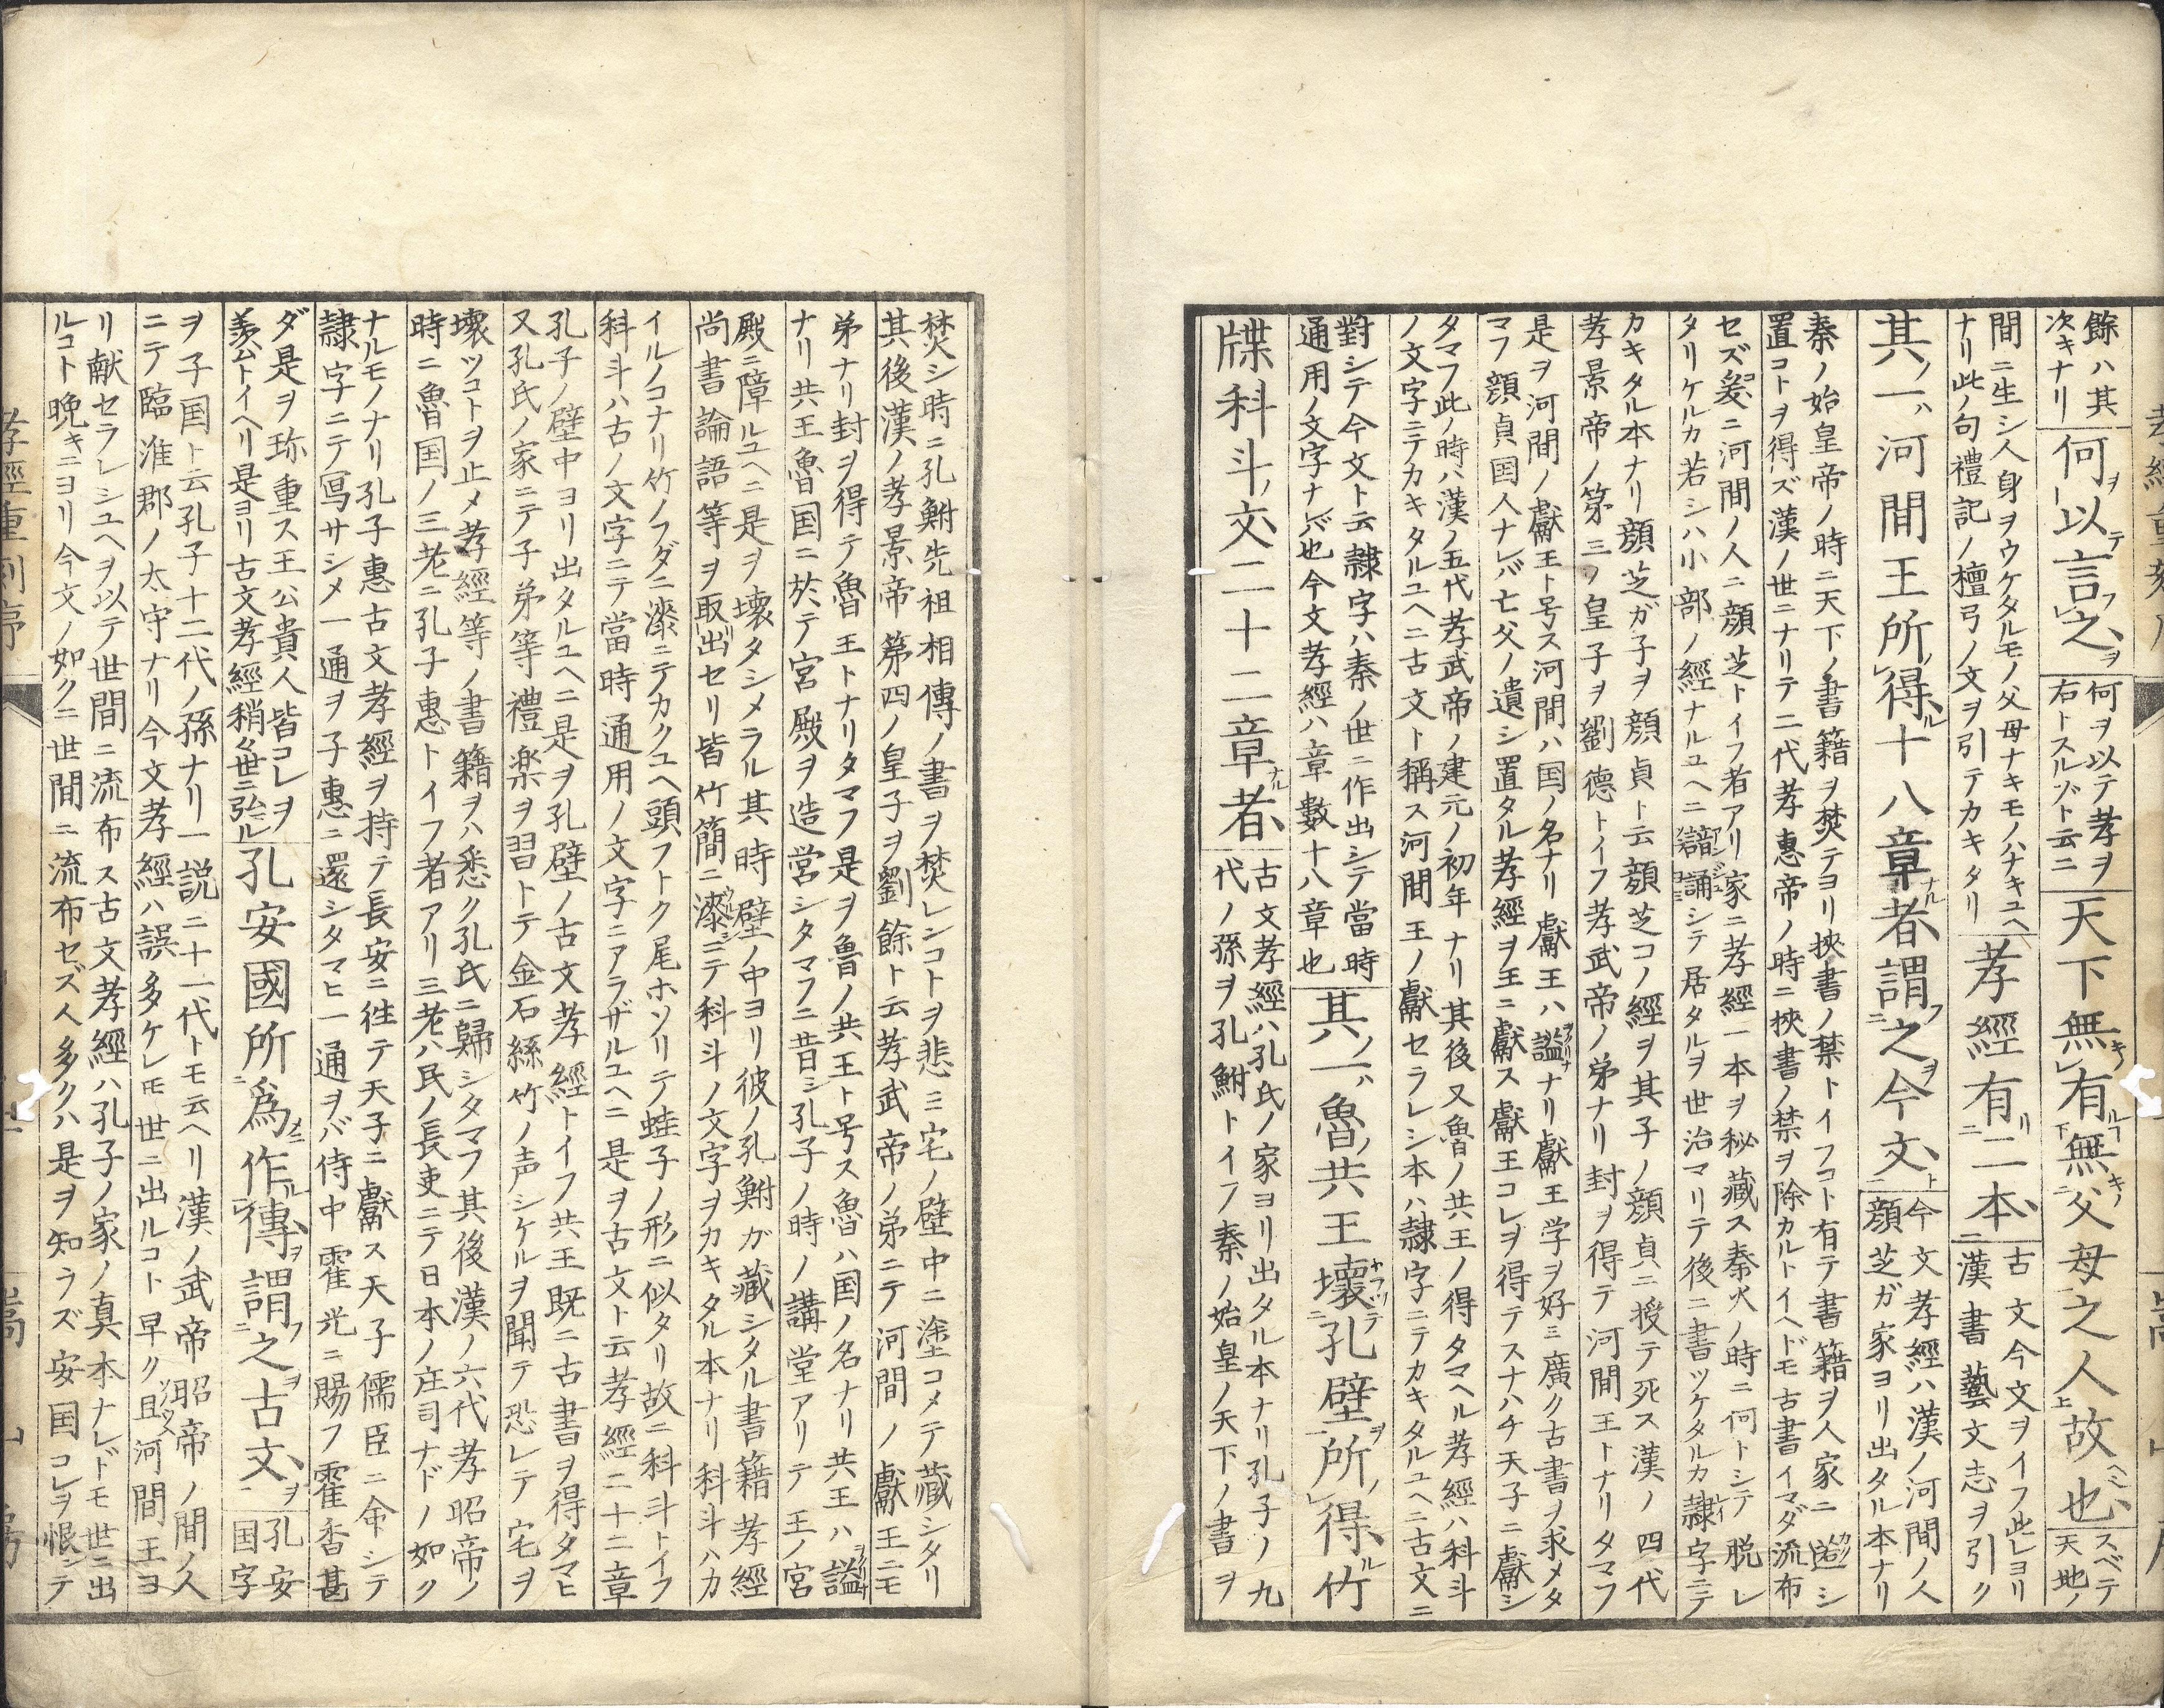 餘ハ其
次キナリ
何ヲ以テ言フ之ヲ
何ヲ以テ孝ヲ
右トスルゾト云ニ
天下無キ有ルヿ無キノ父母之人故ヘニ也
スベテ
天地ノ
間ニ生シ人身ヲウケタルモノ父母ナキモノハナキユヘ
ナリ此ノ句禮記ノ檀弓ノ文ヲ引テカキタリ
孝經有リ二本
古文今文ヲイフ此レヨリ
漢書藝文志ヲ引ク
其ノ一ハ河間王所ノ得ル十八章ナル者謂フ之ヲ今文ト
今文孝經ハ漢ノ河間ノ人
顔芝ガ家ヨリ出タル本ナリ
秦ノ始皇帝ノ時ニ天下ノ書籍ヲ焚テヨリ挾書ノ禁トイフコト有テ書籍ヲ人家ニ シ
置コトヲ得ズ漢ノ世ニナリテ二代孝惠帝ノ時ニ挾書ノ禁ヲ除カルトイヘドモ古書イマダ流布
セズ爰ニ河間ノ人ニ顔芝トイフ者アリ家ニ孝經一本ヲ秘藏ス秦火ノ時ニ何トシテ脱レ
タリケルカ若シハ小部ノ經ナルユヘニ諳誦シテ居タルヲ世治マリテ後ニ書ツケタルカ隷字ニテ
カキタル本ナリ顔芝ガ子ヲ顔貞ト云顔芝コノ經ヲ其子ノ顔貞ニ授テ死ス漢ノ四代
孝景帝ノ第三ノ皇子ヲ劉德トイフ孝武帝ノ弟ナリ封ヲ得テ河間王トナリタマフ
是ヲ河間ノ獻王ト号ス河間ハ国ノ名ナリ獻王ハ謚ナリ獻王学ヲ好ミ廣ク古書ヲ求メタ
マフ顔貞国人ナレバ七父ノ遺シ置タル孝經ヲ王ニ獻ス獻王コレヲ得テスナハチ天子ニ獻シ
タマフ此ノ時ハ漢ノ五代孝武帝ノ建元ノ初年ナリ其後又魯ノ共王ノ得タマヘル孝經ハ科斗
ノ文字ニテカキタルユヘニ古文ト稱ス河間王ノ獻セラレシ本ハ隷字ニテカキタルユヘニ古文ニ
對シテ今文ト云隷字ハ秦ノ世ニ作出シテ當時
通用ノ文字ナレバ也今文孝經ハ章數十八章也
其ノ一ハ魯ノ共王壞ヤフツテ孔壁ヲ所ノ得ル竹
牒科斗ノ文二十二章ナル者
古文孝經ハ孔氏ノ家ヨリ出タル本ナリ孔子ノ九
代ノ孫ヲ孔鮒トイフ秦ノ始皇ノ天下ノ書ヲ
焚シ時ニ孔鮒先祖相傳ノ書ヲ焚レンコトヲ悲ミ宅ノ壁中ニ塗コメテ藏シタリ
其後漢ノ孝景帝第四ノ皇子ヲ劉餘ト云孝武帝ノ弟ニテ河間ノ獻王ニモ
弟ナリ封ヲ得テ魯王トナリタマフ是ヲ魯ノ共王ト号ス魯ハ国ノ名ナリ共王ハ謚
ナリ共王魯国ニ於テ宮殿ヲ造営シタマフニ昔シ孔子ノ時ノ講堂アリテ王ノ宮
殿ニ障ルユヘニ是ヲ壞タシメラル其時壁ノ中ヨリ彼ノ孔鮒ガ藏シタル書籍孝經
尚書論語等ヲ取出セリ皆竹簡ニ漆ニテ科斗ノ文字ヲカキタル本ナリ科斗ハカ
イルノコナリ竹ノフダニ漆ニテカクユヘ頭フトク尾ホソリテ蛙子ノ形ニ似タリ故ニ科斗トイフ
科斗ハ古ノ文字ニテ當時通用ノ文字ニアラザルユヘニ是ヲ古文ト云孝經二十二章
孔子ノ壁中ヨリ出タルユヘニ是ヲ孔壁ノ古文孝經トイフ共王既ニ古書ヲ得タマヒ
又孔氏ノ家ニテ子弟等禮楽ヲ習トテ金石絲竹ノ声シケルヲ聞テ恐レテ宅ヲ
壞ツコトヲ止メ孝經等ノ書籍ヲハ悉ク孔氏ニ歸シタマフ其後漢ノ六代孝昭帝ノ
時ニ魯国ノ三老ニ孔子惠トイフ者アリ三老ハ民ノ長吏ニテ日本ノ庄司ナドノ如ク
ナルモノナリ孔子惠古文孝經ヲ持テ長安ニ徃テ天子ニ獻ス天子儒臣ニ命シテ
隷字ニテ冩サシメ一通ヲ子惠ニ還シタマヒ一通ヲバ侍中霍光ニ賜フ霍香甚
ダ是ヲ珎重ス王公貴人皆コレヲ
羨ムトイヘリ是ヨリ古文孝經稍々世ニ弘ル
孔安國所ノ爲メニ作ル傳ヲ謂フ之ヲ古文ヲ
孔安
国字
ヲ子国ト云孔子十二代ノ孫ナリ一説ニ十一代トモ云ヘリ漢ノ武帝昭帝ノ間ノ人
ニテ臨淮郡ノ太守ナリ今文孝經ハ誤多ケレモ世ニ出ルコト早ク且河間王ヨ
リ献セラレシユヘヲ以テ世間ニ流布ス古文孝經ハ孔子ノ家ノ真本ナレドモ世ニ出
ルコト晩キニヨリ今文ノ如クニ世間ニ流布セズ人多クハ是ヲ知ラズ安国コレヲ恨ミテ